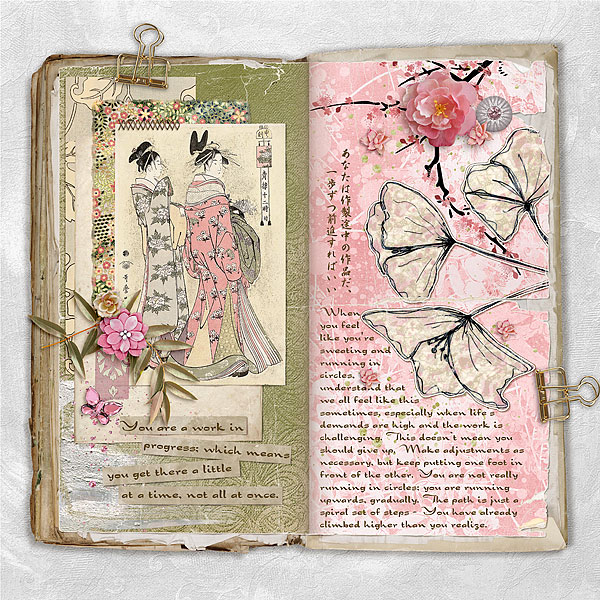 You are a work in
progress; which means
you get there a little
at a time, not all at once.
あなたは作製途中の作品だ、
一歩ずつ前進すればいい
When
you feel
like you're
sweating and
running in
circles,
understand that
we all feel like this
sometimes, especially when life's
demands are high and the work is
challenging. This doesn't mean you
should give up, Make adjustments as
necessary, but keep putting one foot in
front of the other. You are not really
running in circles; you are running
upwards, gradually. The path is just a
spiral set of steps - You have already
climbed higher than you realize.